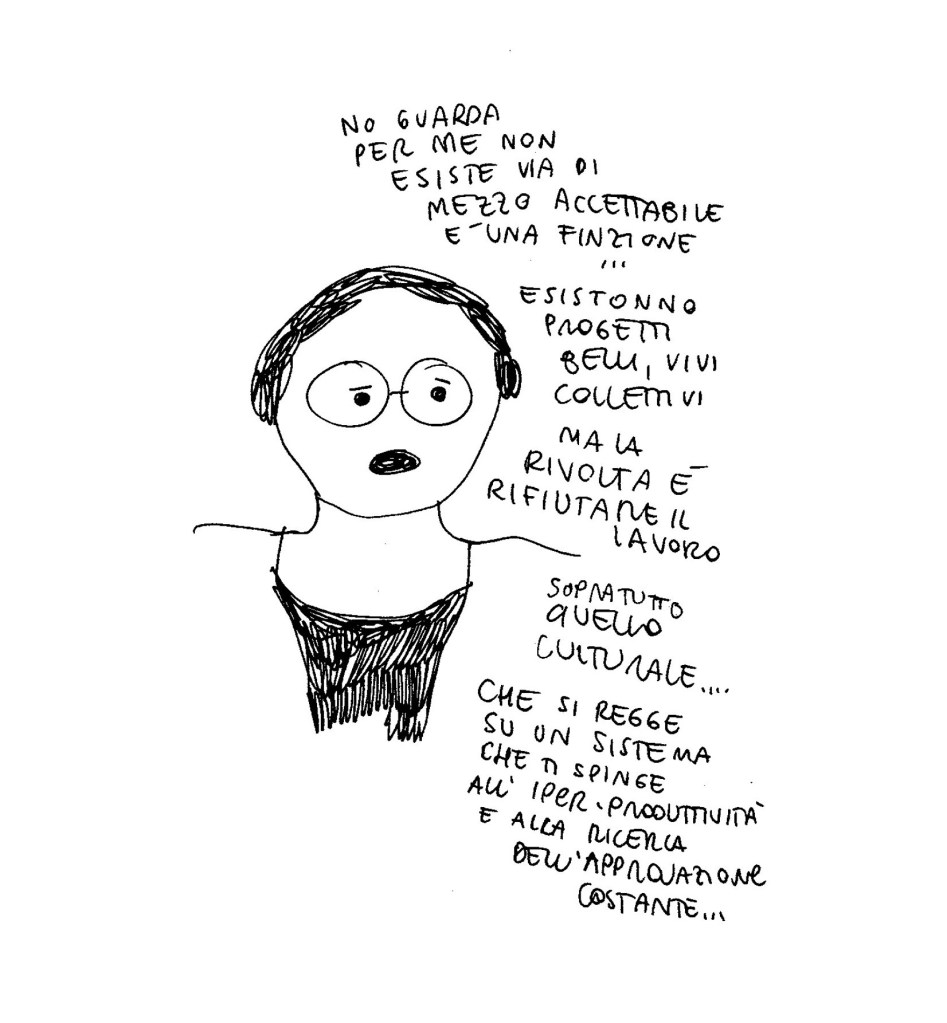 NO GUARDA
PER ME NON
ESISTE VIA DI
MEZZO ACCETTABILE
E' UNA FINZIONE
...
ESISTONNO
PROGETTI
BELLI, VIVI
COLLETTIVI
MA LA
RIVOLTA É
RIFIUTARE IL
LAVORO
SOPRATUTTO
QUELLO
CULTURALE....
CHE SI REGGE
SU UN SISTEMA
CHE TI SPINGE
ALL' IPER-PRODUTTIVITÀ
E ALLA RICERCA
DELL'APPROVAZIONE
COSTANTE...